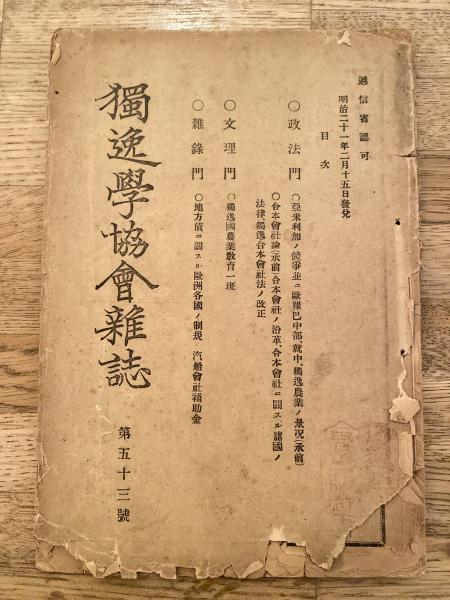 遞信省認可
明治二十一年二月十五日發兌
目次
○政法門
○亞米利加ノ競爭並ニ歐羅巴中部就中、獨逸農業ノ景況(承前)
○合本會社論(承前)合本會社ノ沿革、合本會社ニ關スル諸國ノ
法律、獨逸合本會社法ノ改正
○文理門
○獨逸國農業敎育一班
○雜錄門
○地方債ニ關スル歐洲各國ノ制規○汽船會社補助金
獨逸學協會雜誌
第五十三號